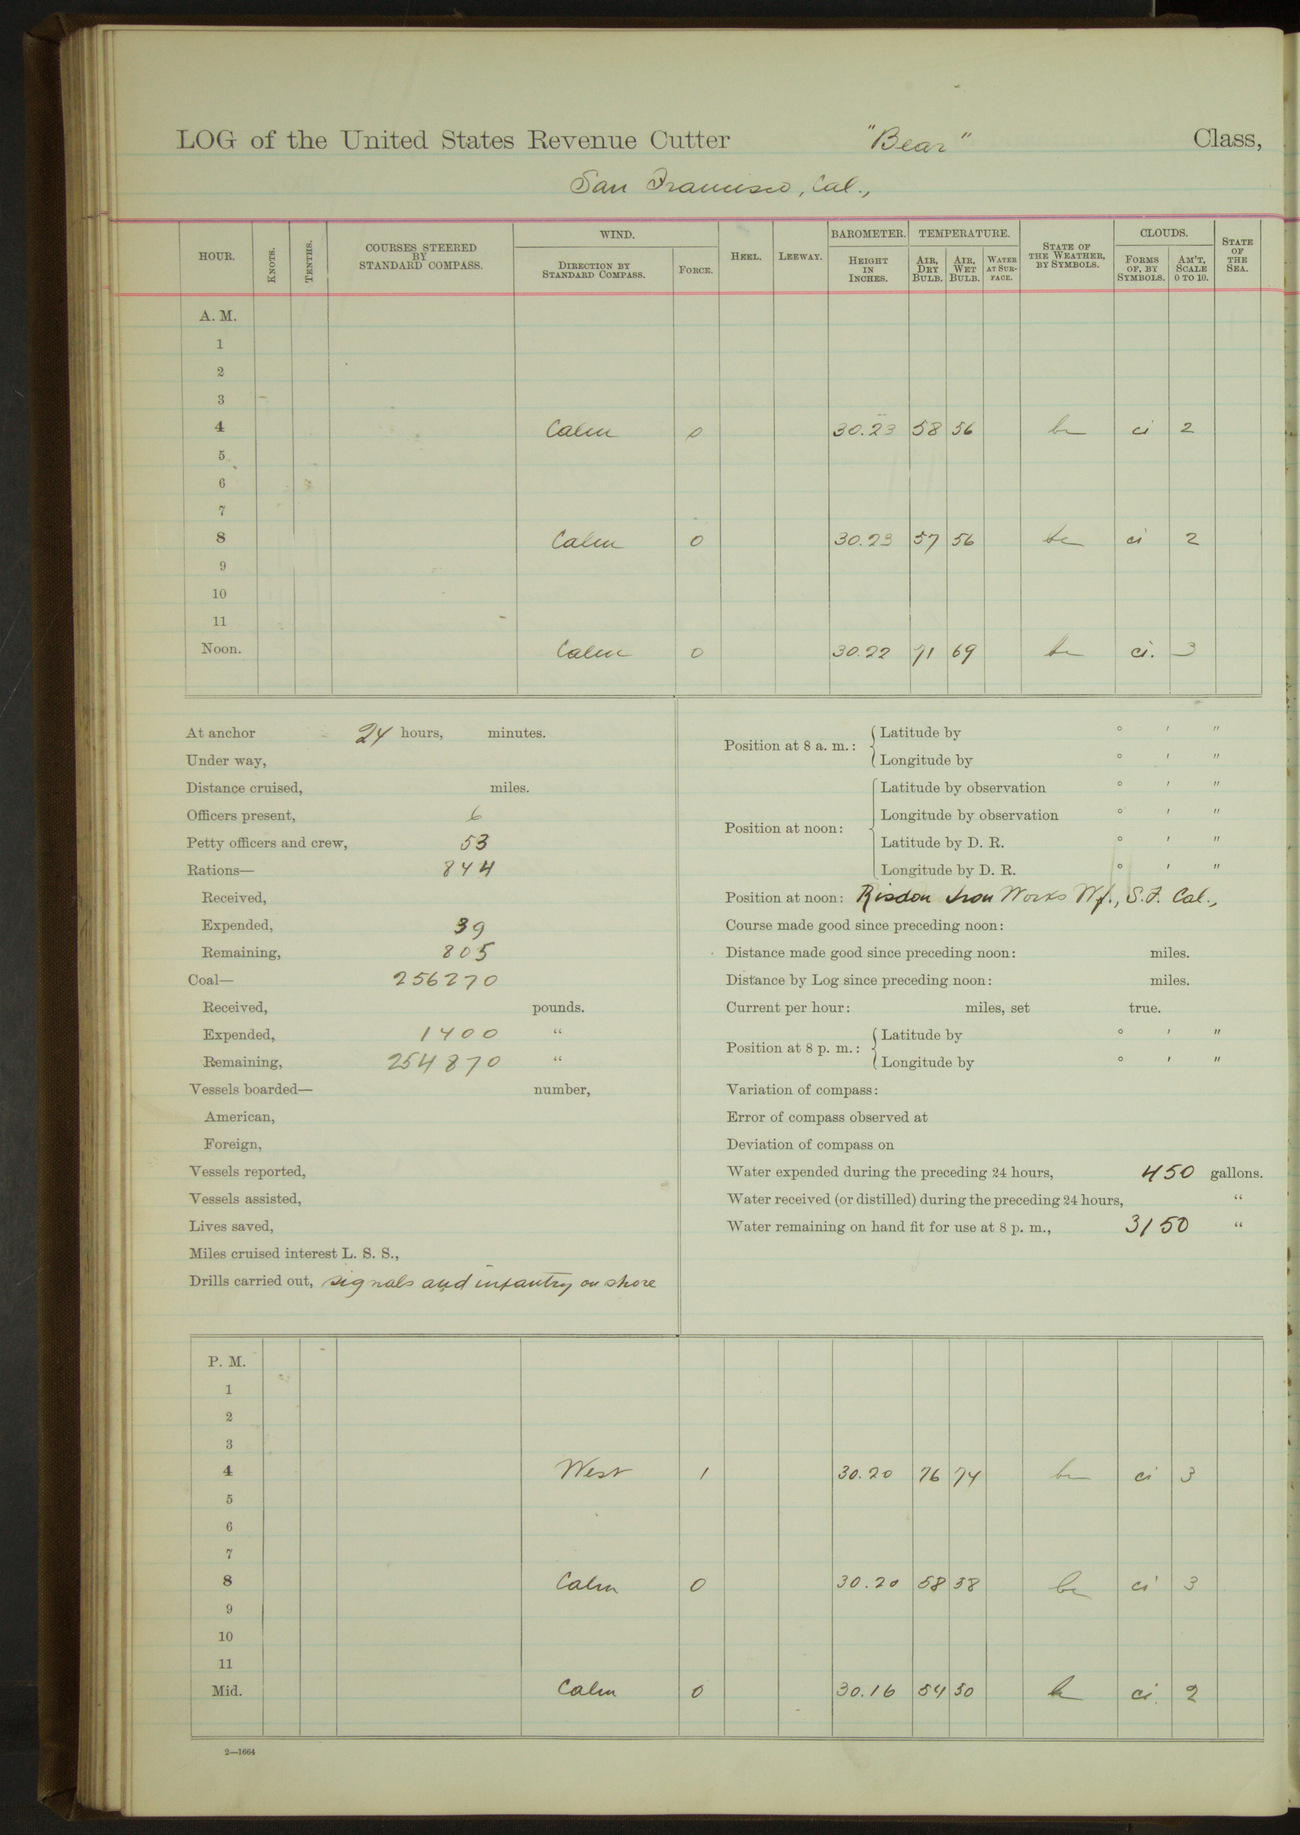 LOG of the United States Revenue Cutter "Bear" Class,
San Francisco, Cal.,
HOUR. KNOTS. TENTHS. COURSES STEERED BY STANDARD COMPASS. WIND. DIRECTION BY STANDARD COMPASS. FORCE. HEEL. LEEWAY. BAROMETER. HEIGHT IN INCHES. TEMPERATURE. AIR, DRY BULB. AIR, WET BULB. WATER AT SURFACE. STATE OF THE WEATHER, BY SYMBOLS. CLOUDS. FORMS OF, BY SYMBOLS. AM'T, SCALE 0 TO 10. STATE OF THE SEA.
A. M.
1
2
3
4 Calm 0 30.23 58 56 bc ci 2
5
6
7
8 Calm 0 30.23 57 56 bc ci 2
9
10
11
Noon. Calm 0 30.22 71 69 bc ci. 3
At anchor 24 hours, minutes.
Under way,
Distance cruised, miles.
Officers present, 6
Petty officers and crew, 53
Rations— 844
Received,
Expended, 39
Remaining, 805
Coal— 256270
Received, pounds.
Expended, 1400 "
Remaining, 254870 "
Vessels boarded— number,
American,
Foreign,
Vessels reported,
Vessels assisted,
Lives saved,
Miles cruised interest L. S. S.,
Drills carried out, signals and infantry on shore
Position at 8 a. m.: Latitude by ° ′ ″
Longitude by ° ′ ″
Position at noon: Latitude by observation ° ′ ″
Longitude by observation ° ′ ″
Latitude by D. R. ° ′ ″
Longitude by D. R. ° ′ ″
Position at noon: Risdon Iron Works Wf., S.F. Cal.,
Course made good since preceding noon:
Distance made good since preceding noon: miles.
Distance by Log since preceding noon: miles.
Current per hour: miles, set true.
Position at 8 p. m.: Latitude by ° ′ ″
Longitude by ° ′ ″
Variation of compass:
Error of compass observed at
Deviation of compass on
Water expended during the preceding 24 hours, 450 gallons.
Water received (or distilled) during the preceding 24 hours, "
Water remaining on hand fit for use at 8 p. m., 3150 "
P. M.
1
2
3
4 West 1 30.20 76 74 bc ci 3
5
6
7
8 Calm 0 30.20 58 58 bc ci 3
9
10
11
Mid. Calm 0 30.16 54 50 bc ci. 2
2—1664